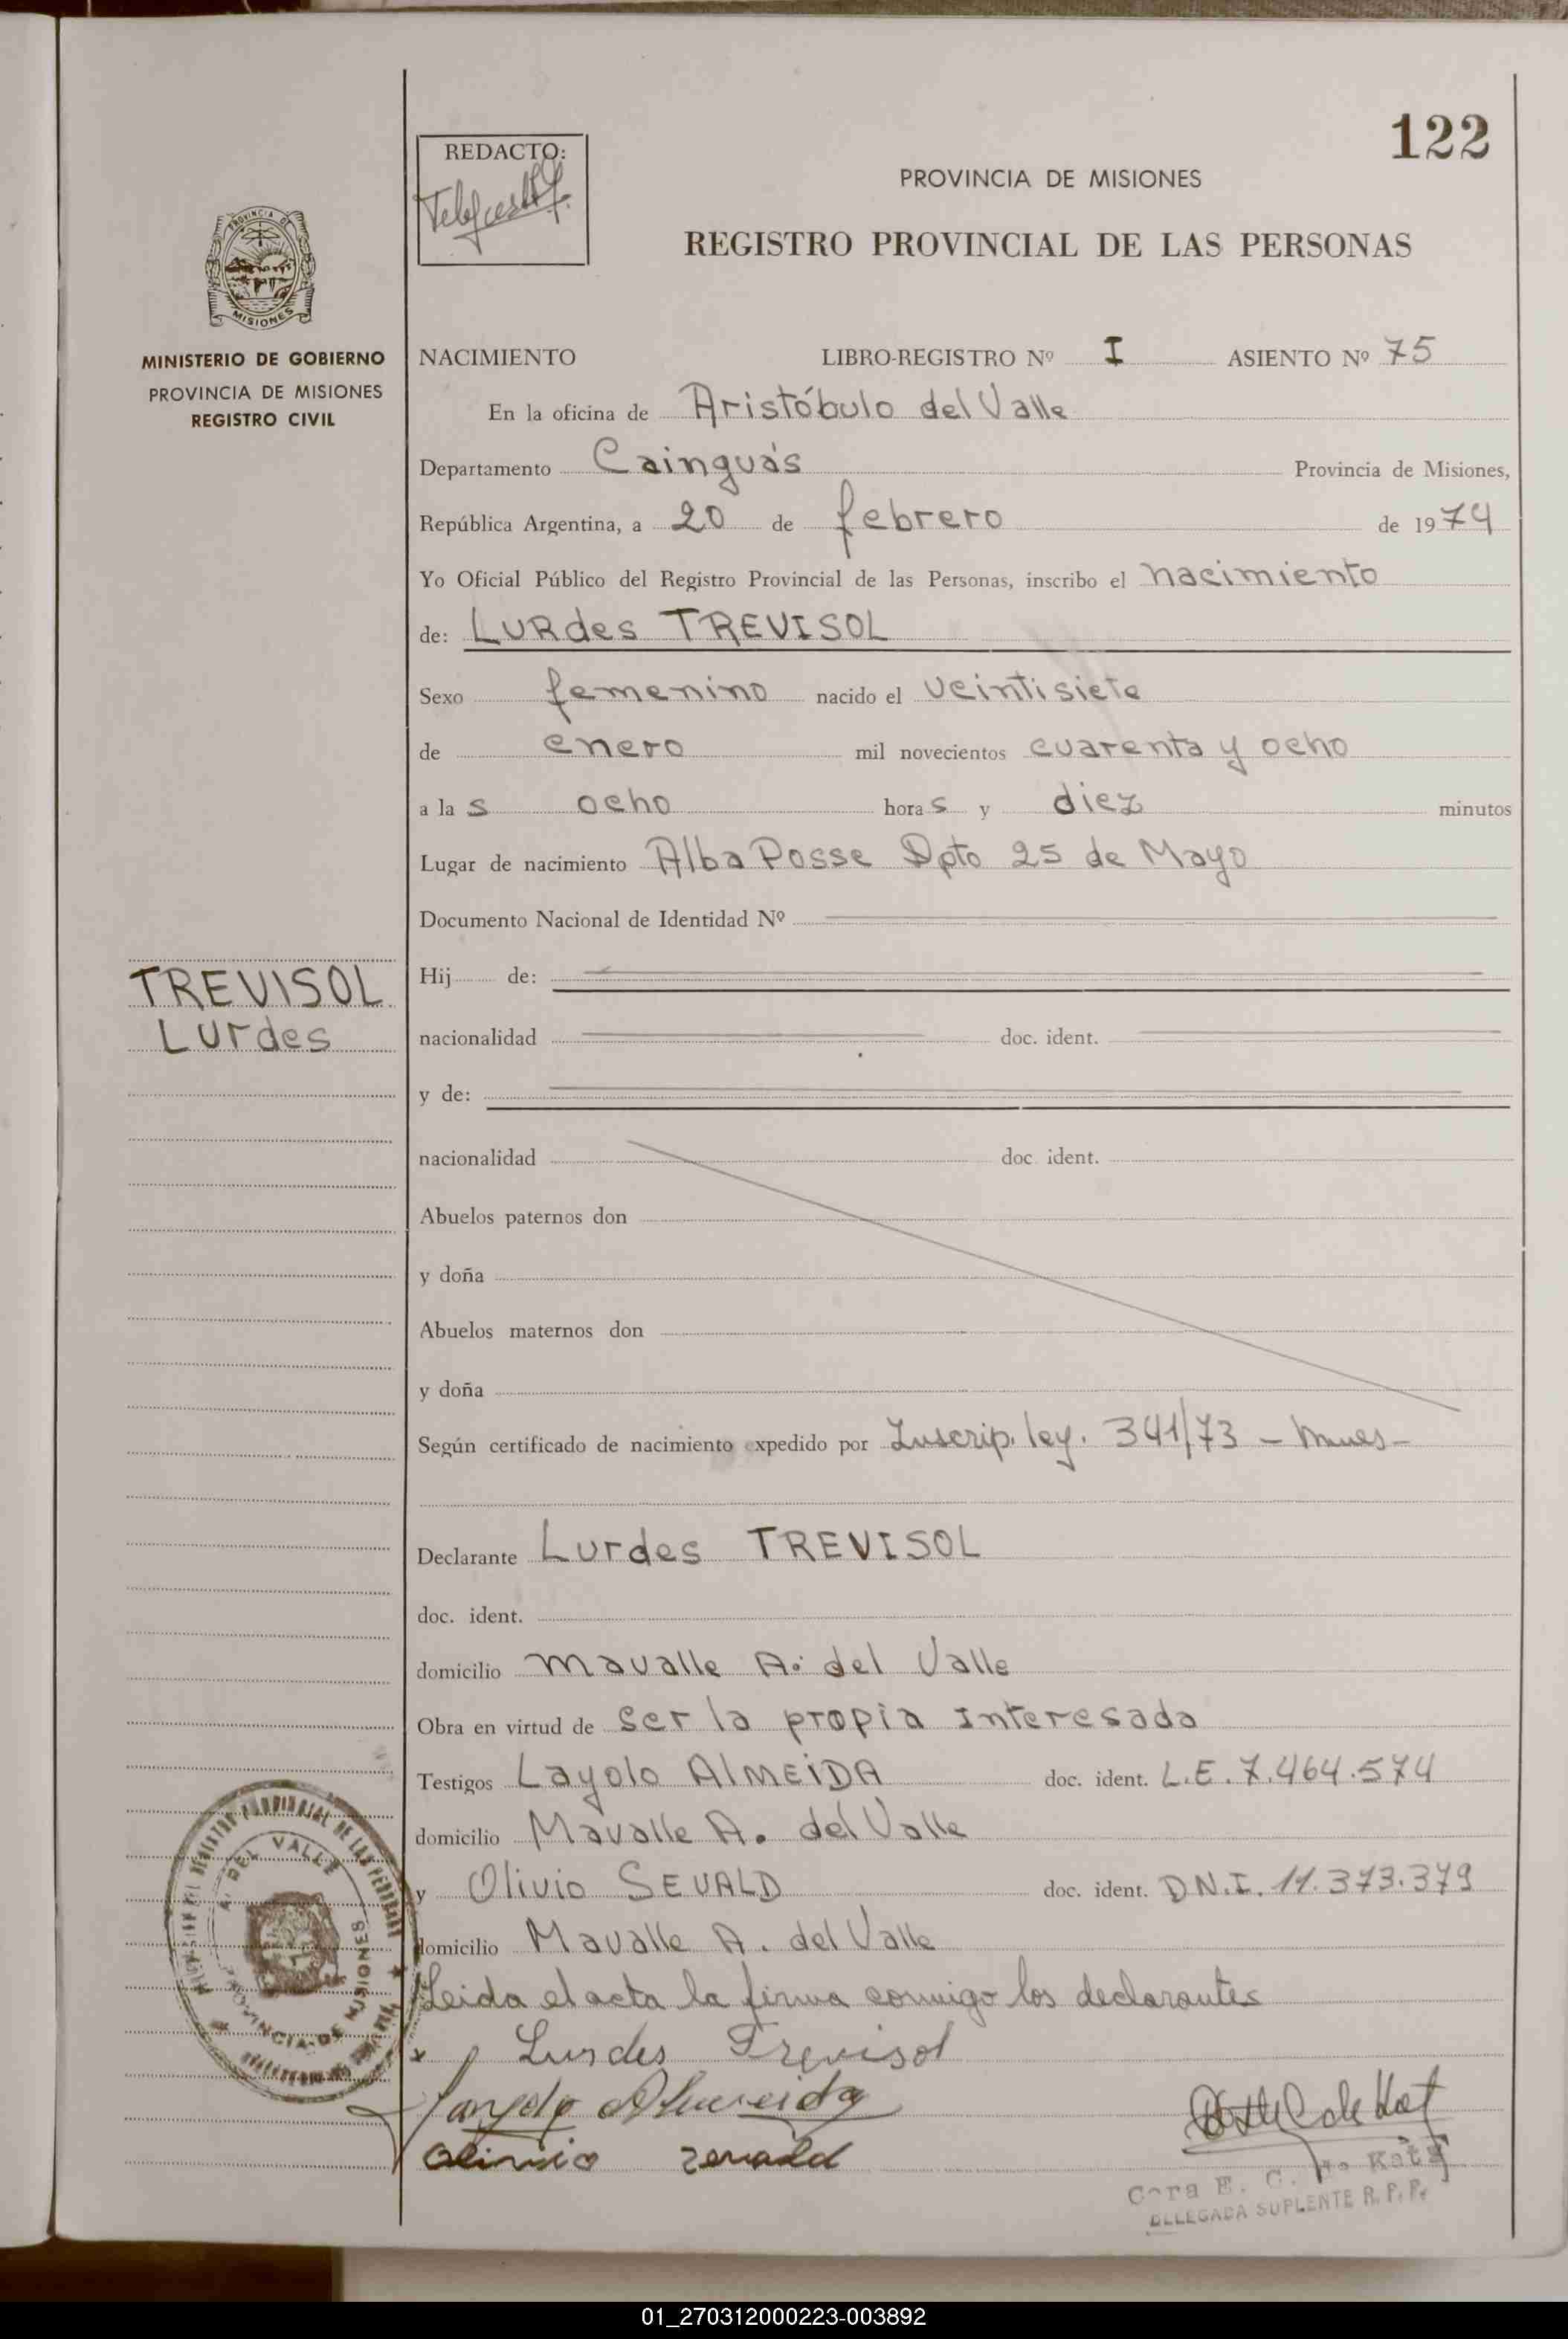 122
REDACTO:
PROVINCIA DE MISIONES
REGISTRO PROVINCIAL DE LAS PERSONAS
PROVINCIA DE
MISIONES
MINISTERIO DE GOBIERNO
PROVINCIA DE MISIONES
REGISTRO CIVIL
NACIMIENTO LIBRO-REGISTRO Nº I ASIENTO Nº 75
En la oficina de Aristóbulo del Valle
Departamento Cainguás Provincia de Misiones,
República Argentina, a 20 de febrero de 1974
Yo Oficial Público del Registro Provincial de las Personas, inscribo el nacimiento
de: LURdes TREVISOL
Sexo femenino nacido el veintisiete
de enero mil novecientos cuarenta y ocho
a las ocho horas y diez minutos
Lugar de nacimiento Alba Posse Dpto 25 de Mayo
Documento Nacional de Identidad Nº
Hij de:
TREVISOL
Lurdes
nacionalidad doc. ident.
y de:
nacionalidad doc. ident.
Abuelos paternos don
y doña
Abuelos maternos don
y doña
Según certificado de nacimiento expedido por Inscrip. ley. 341/73 -
Declarante Lurdes TREVISOL
doc. ident.
domicilio Mavalle A. del Valle
Obra en virtud de ser la propia interesada
Testigos Layolo ALMEIDA doc. ident. L.E. 7.464.574
domicilio Mavalle A. del Valle
y Olivio SEVALD doc. ident. D.N.I. 11.373.379
domicilio Mavalle A. del Valle
Leida el acta la firma conmigo los declarantes
x Lurdes Trevisol
Almeida
Olinvio zevald
Cora E. C. de Katz
DELEGADA SUPLENTE R. P. P.
REGISTRO PROVINCIAL DE LAS PERSONAS
A. DEL VALLE
PROVINCIA DE MISIONES
01_270312000223-003892